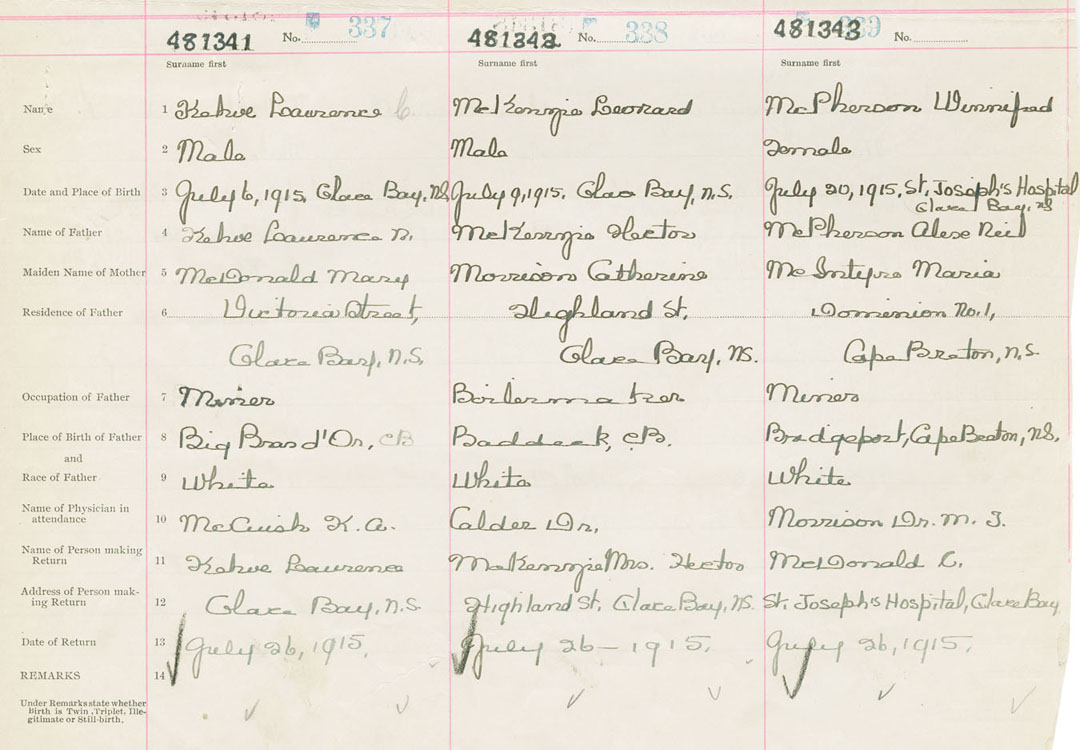 481341 No. 337 481342 No. 338 481343 339 No.
Surname first Surname first Surname first
Name 1 Kehoe Lawrence C McKenzie Leonard McPherson Winnifred
Sex 2 Male Male Female
Date and Place of Birth 3 July 6, 1915, Glace Bay, N.S. July 9, 1915. Glace Bay, N.S. July 20, 1915, St. Joseph's Hospital
Glace Bay, NS
Name of Father 4 Kehoe Lawrence McKenzie Hector McPherson Alex Neil
Maiden Name of Mother 5 McDonald Mary Morrison Catherine McIntyre Maria
Residence of Father 6 Victoria Street, Highland St, Dominion No. 1,
Glace Bay, N.S. Glace Bay, NS. Cape Breton, N.S.
Occupation of Father 7 Miner Boilermaker Miner
Place of Birth of Father 8 Big Bras d'Or, CB Baddeck, CB. Bridgeport, Cape Breton, NS.
and
Race of Father 9 White White White
Name of Physician in
attendance 10 McCuish K. A. Calder Dr, Morrison Dr. M. T.
Name of Person making
Return 11 Kehoe Lawrence McKenzie Mrs. Hector McDonald C.
Address of Person mak-
ing Return 12 Glace Bay, N.S. Highland St, Glace Bay, NS. St. Joseph's Hospital, Glace Bay
Date of Return 13 July 26, 1915, July 26 - 1915. July 26, 1915.
REMARKS 14
Under Remarks state whether
Birth is Twin, Triplet, Ille-
gitimate or Still-birth.